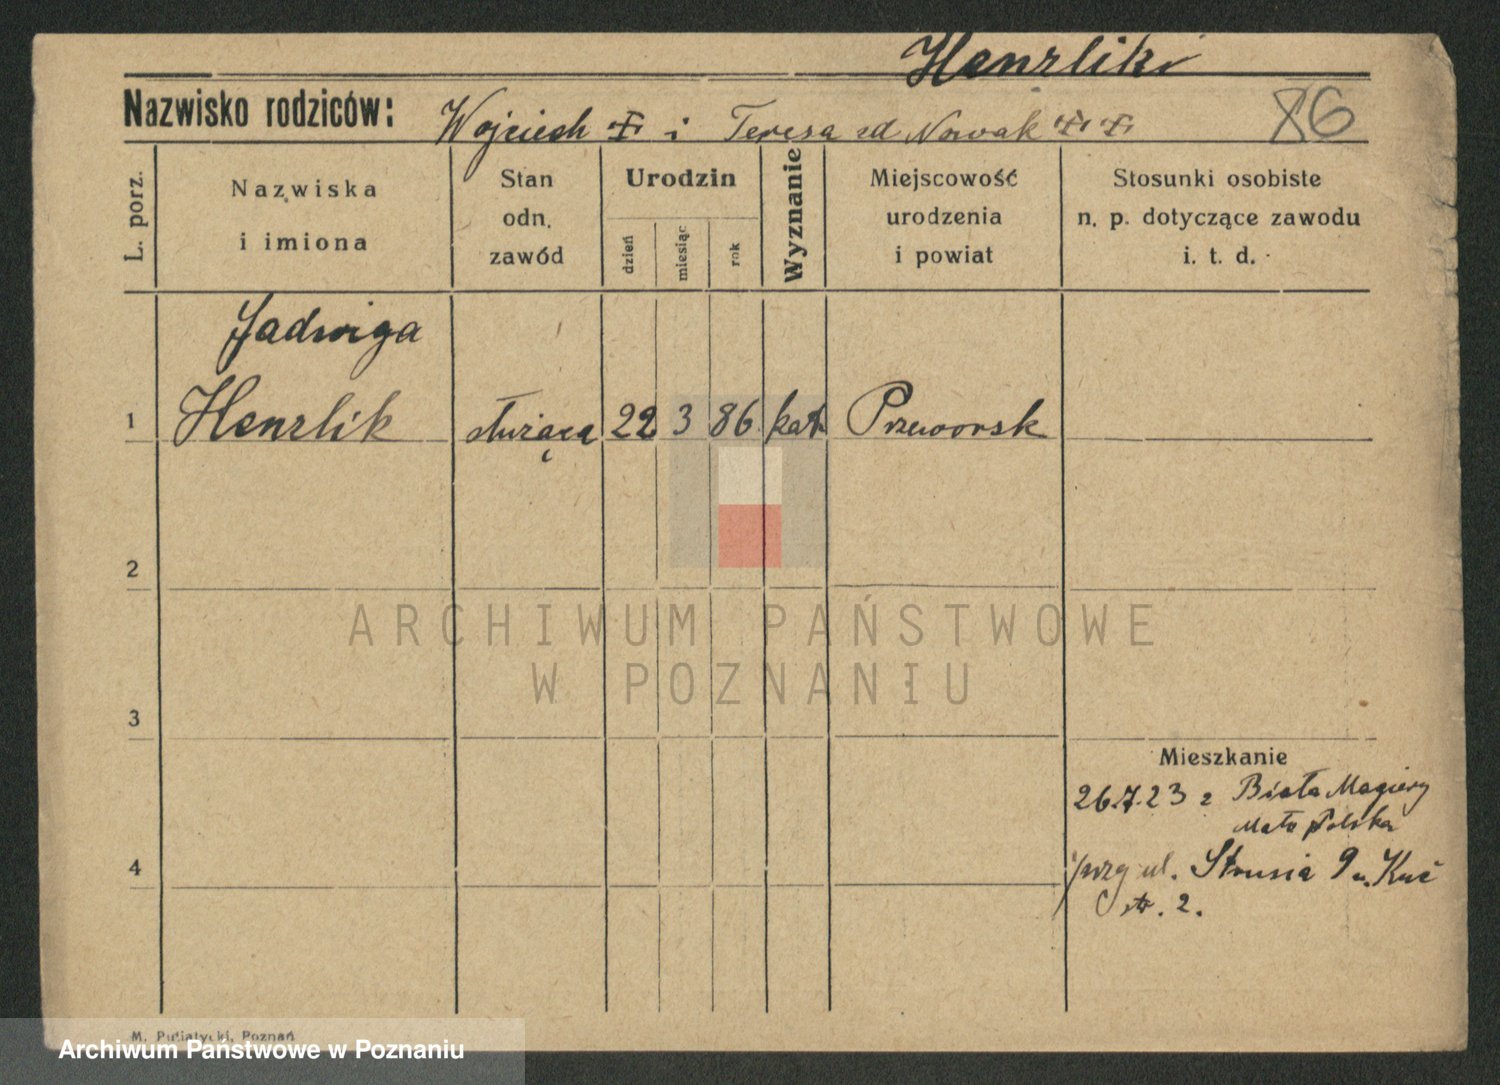 Henrliki
Nazwisko rodziców: Wojciech i Teresa zd Nowak
86
L. porz.
Nazwiska
i imiona
Stan
odn.
zawód
Urodzin
dzień
miesiąc
rok
Wyznanie
Miejscowość
urodzenia
i powiat
Stosunki osobiste
n. p. dotyczące zawodu
i. t. d.
Jadwiga
1 Henrlik służąca 22 3 86 kat. Przeworsk
2
3
4
ARCHIWUM PAŃSTWOWE
W POZNANIU
Mieszkanie
26.7.23 z Biała Magiery
Mało polska
ul. Strusia 9 u. Kuć
str. 2.
M. Putiatycki, Poznań
Archiwum Państwowe w Poznaniu